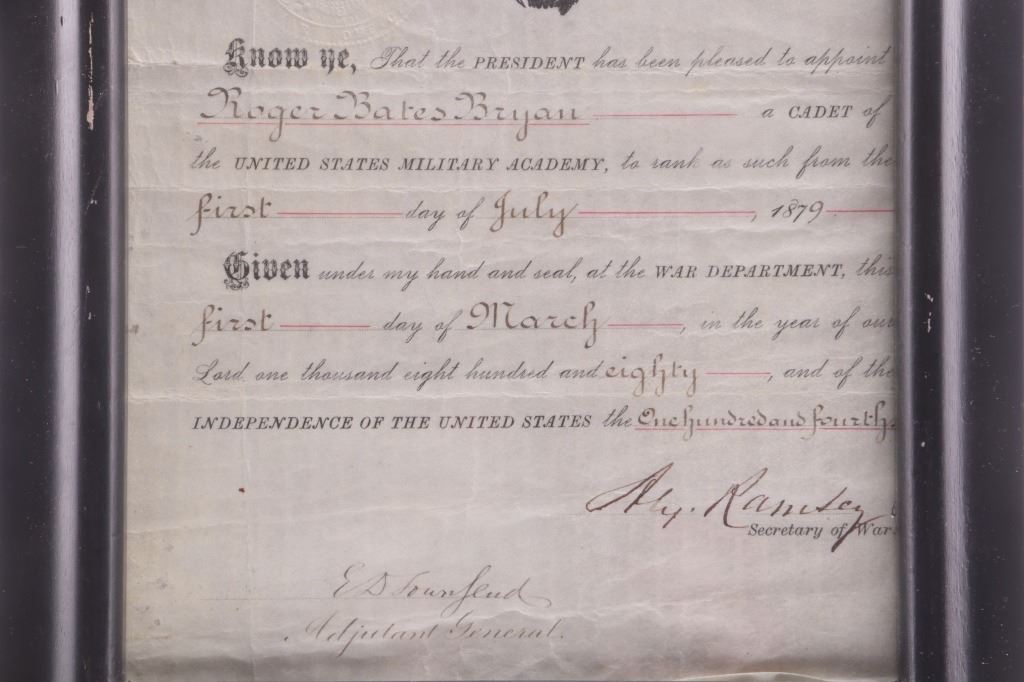 Know ye, That the PRESIDENT has been pleased to appoint
Roger Bates Bryan a CADET of
the UNITED STATES MILITARY ACADEMY, to rank as such from the
first day of July, 1879
Given under my hand and seal, at the WAR DEPARTMENT, this
first day of March, in the year of our
Lord one thousand eight hundred and eighty, and of the
INDEPENDENCE OF THE UNITED STATES the One hundred and fourth.
Alex. Ramsey
Secretary of War.
E D Townsend
Adjutant General.